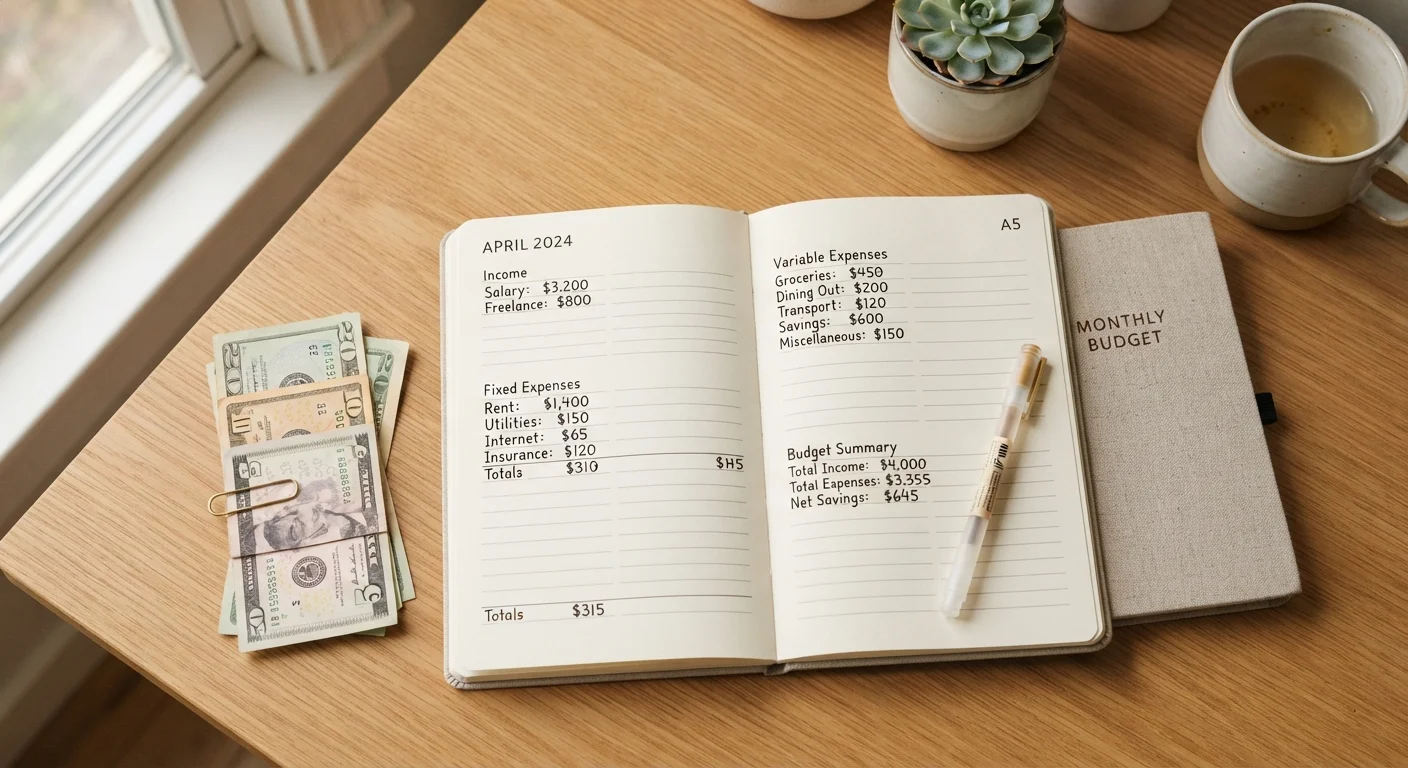 APRIL 2024
Income
Salary: $3.200
Freelance: $800
Fixed Expenses
Rent: $1,400
Utilities: $150
Internet: $65
Insurance: $120
Totals $310 $H5
Totals $315
A5
Variable Expenses
Groceries: $450
Dining Out: $200
Transport: $120
Savings: $600
Miscellaneous: $150
Budget Summary
Total Income: $4,000
Total Eapenses: $3.355
Net Savings: $645
MONTHLY
BUDGET
20
10
5